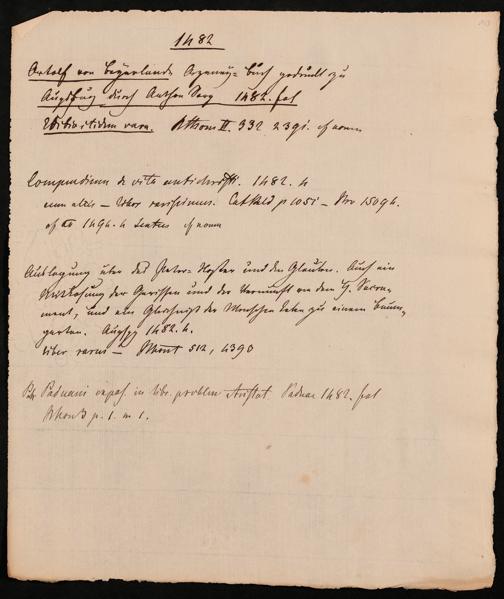 1482
Ortolf von Beyerlandt Arzeney=buch gedruckt zu
Augsburg durch Anthon Sorg 1482. fol
rara. Thom II. 332 2391. cf
Compendium de vita antichristi. 1482. 4
cum aliis – liber rarissimus. Cat p 1051 – No 15094.
cf 1494. 4 cf
Auslegung über das Pater=Noster und den Glauben. Auch ein
der Gewissen und der Vernunft von dem h. Sacra=
ment, und ein Gleichniß der Menschen Leben zu einem Baum=
garten. Augspg 1482. 4.
liber rarus – 512, 4390
Paduani expos. in libr. problem Aristot. Paduae 1482. fol
p. 1. n 1.